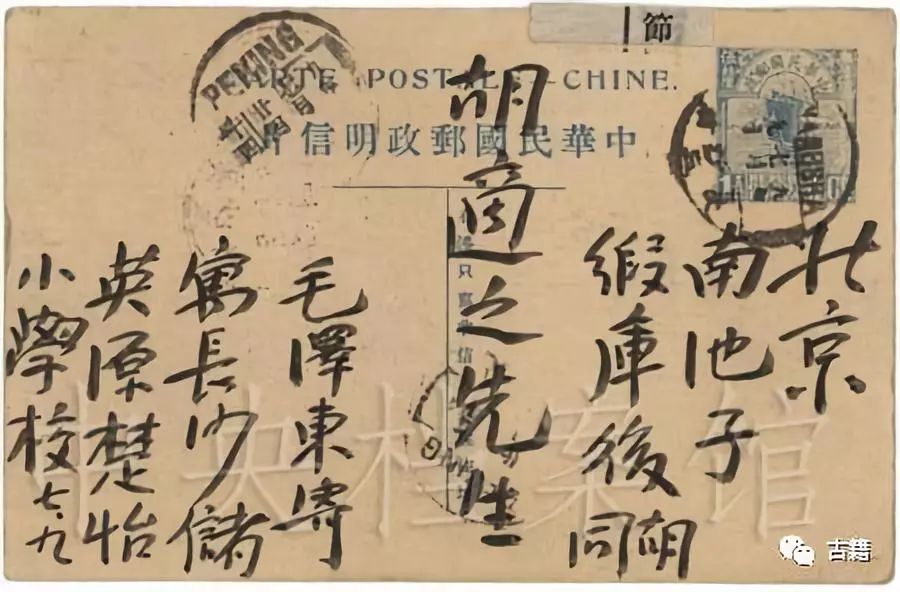 節
CARTE POSTALE—CHINE.
中華民國郵政明信片
PEKING
北京
南池子
緞庫後胡同
胡適之先生
毛澤東寄
寓長沙儲
英源楚怡
小學校 七.九
中央档案馆
古籍